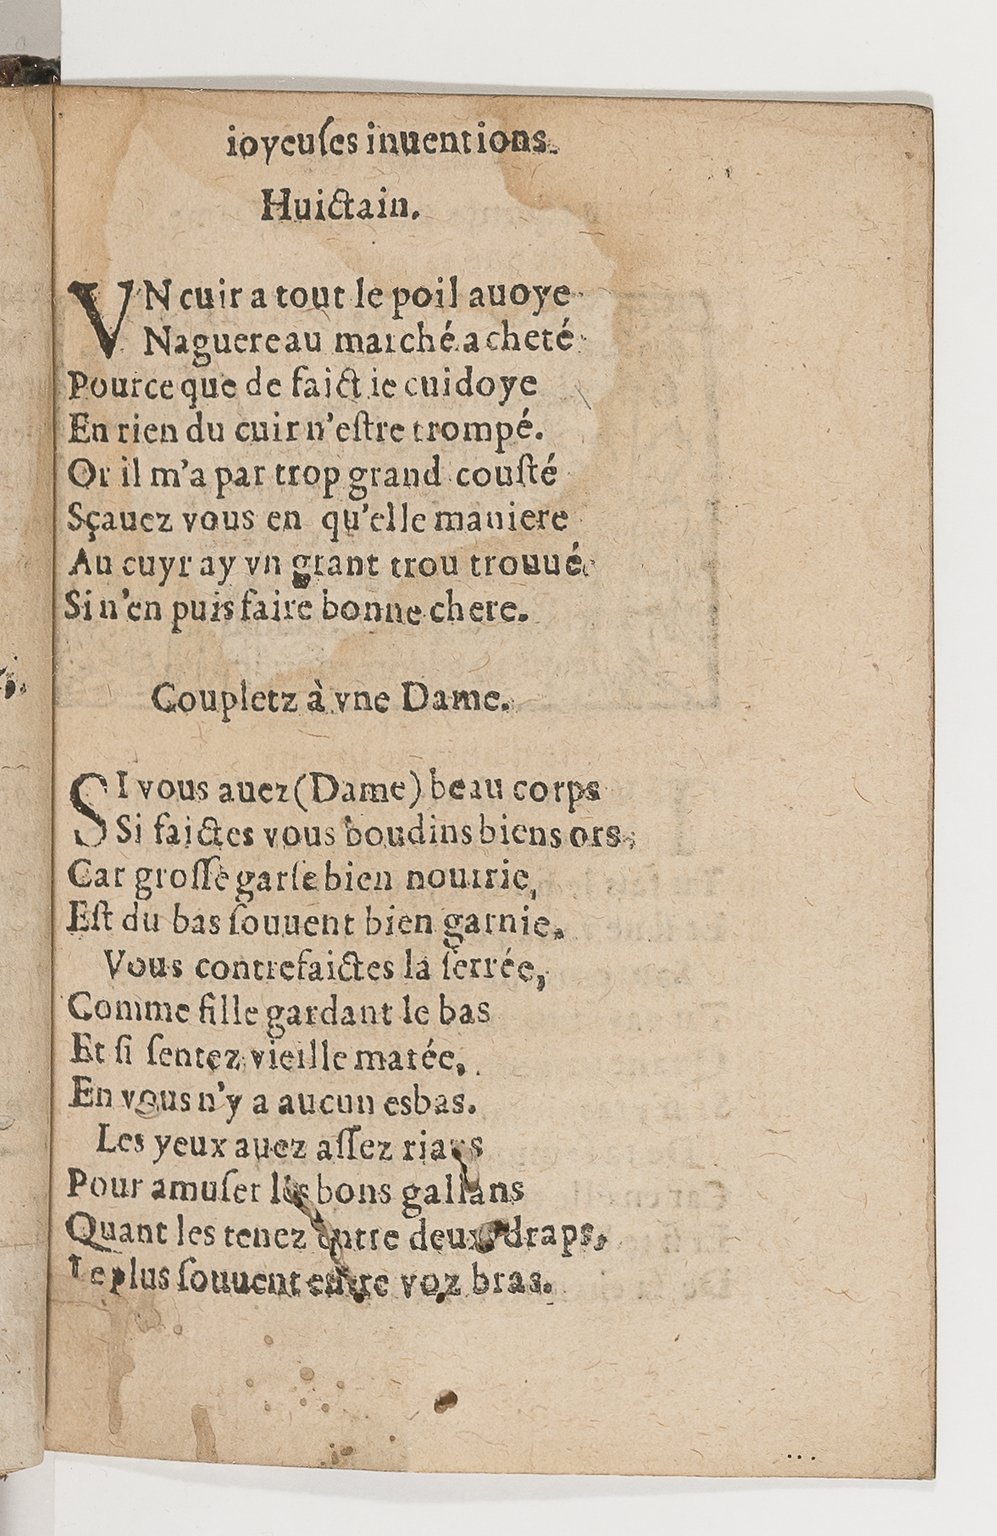 ioyeuſes inuentions.
Huictain.
VN cuir a tout le poil auoye
Naguere au marché acheté
Pource que de faict ie cuidoye
En rien du cuir n'eſtre trompé.
Or il m'a par trop grand couſté
Sçauez vous en qu'elle maniere
Au cuyr ay vn grant trou trouué.
Si n'en puis faire bonne chere.
Coupletz à vne Dame.
SI vous auez (Dame) beau corps
Si faictes vous boudins biens ors,
Car groſſe garſe bien nourrie,
Eſt du bas ſouuent bien garnie.
Vous contrefaictes la ſerrée,
Comme fille gardant le bas
Et ſi ſentez vieille matée,
En vous n'y a aucun esbas.
Les yeux auez aſſez rians
Pour amuſer les bons gallans
Quant les tenez entre deux draps,
Le plus ſouuent entre voz bras.